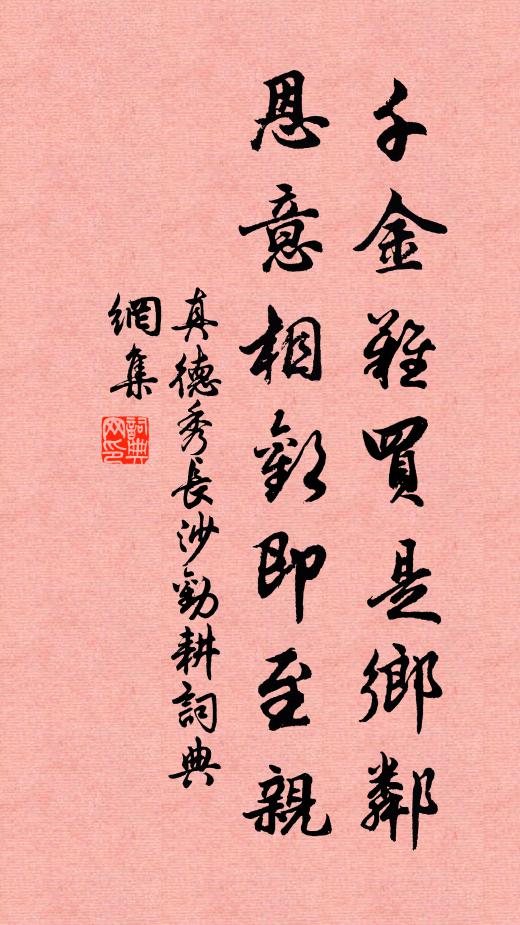 千金難買是鄉鄰
恩意相歡即至親
真德秀長沙勸耕詞典
網集
詞典網印